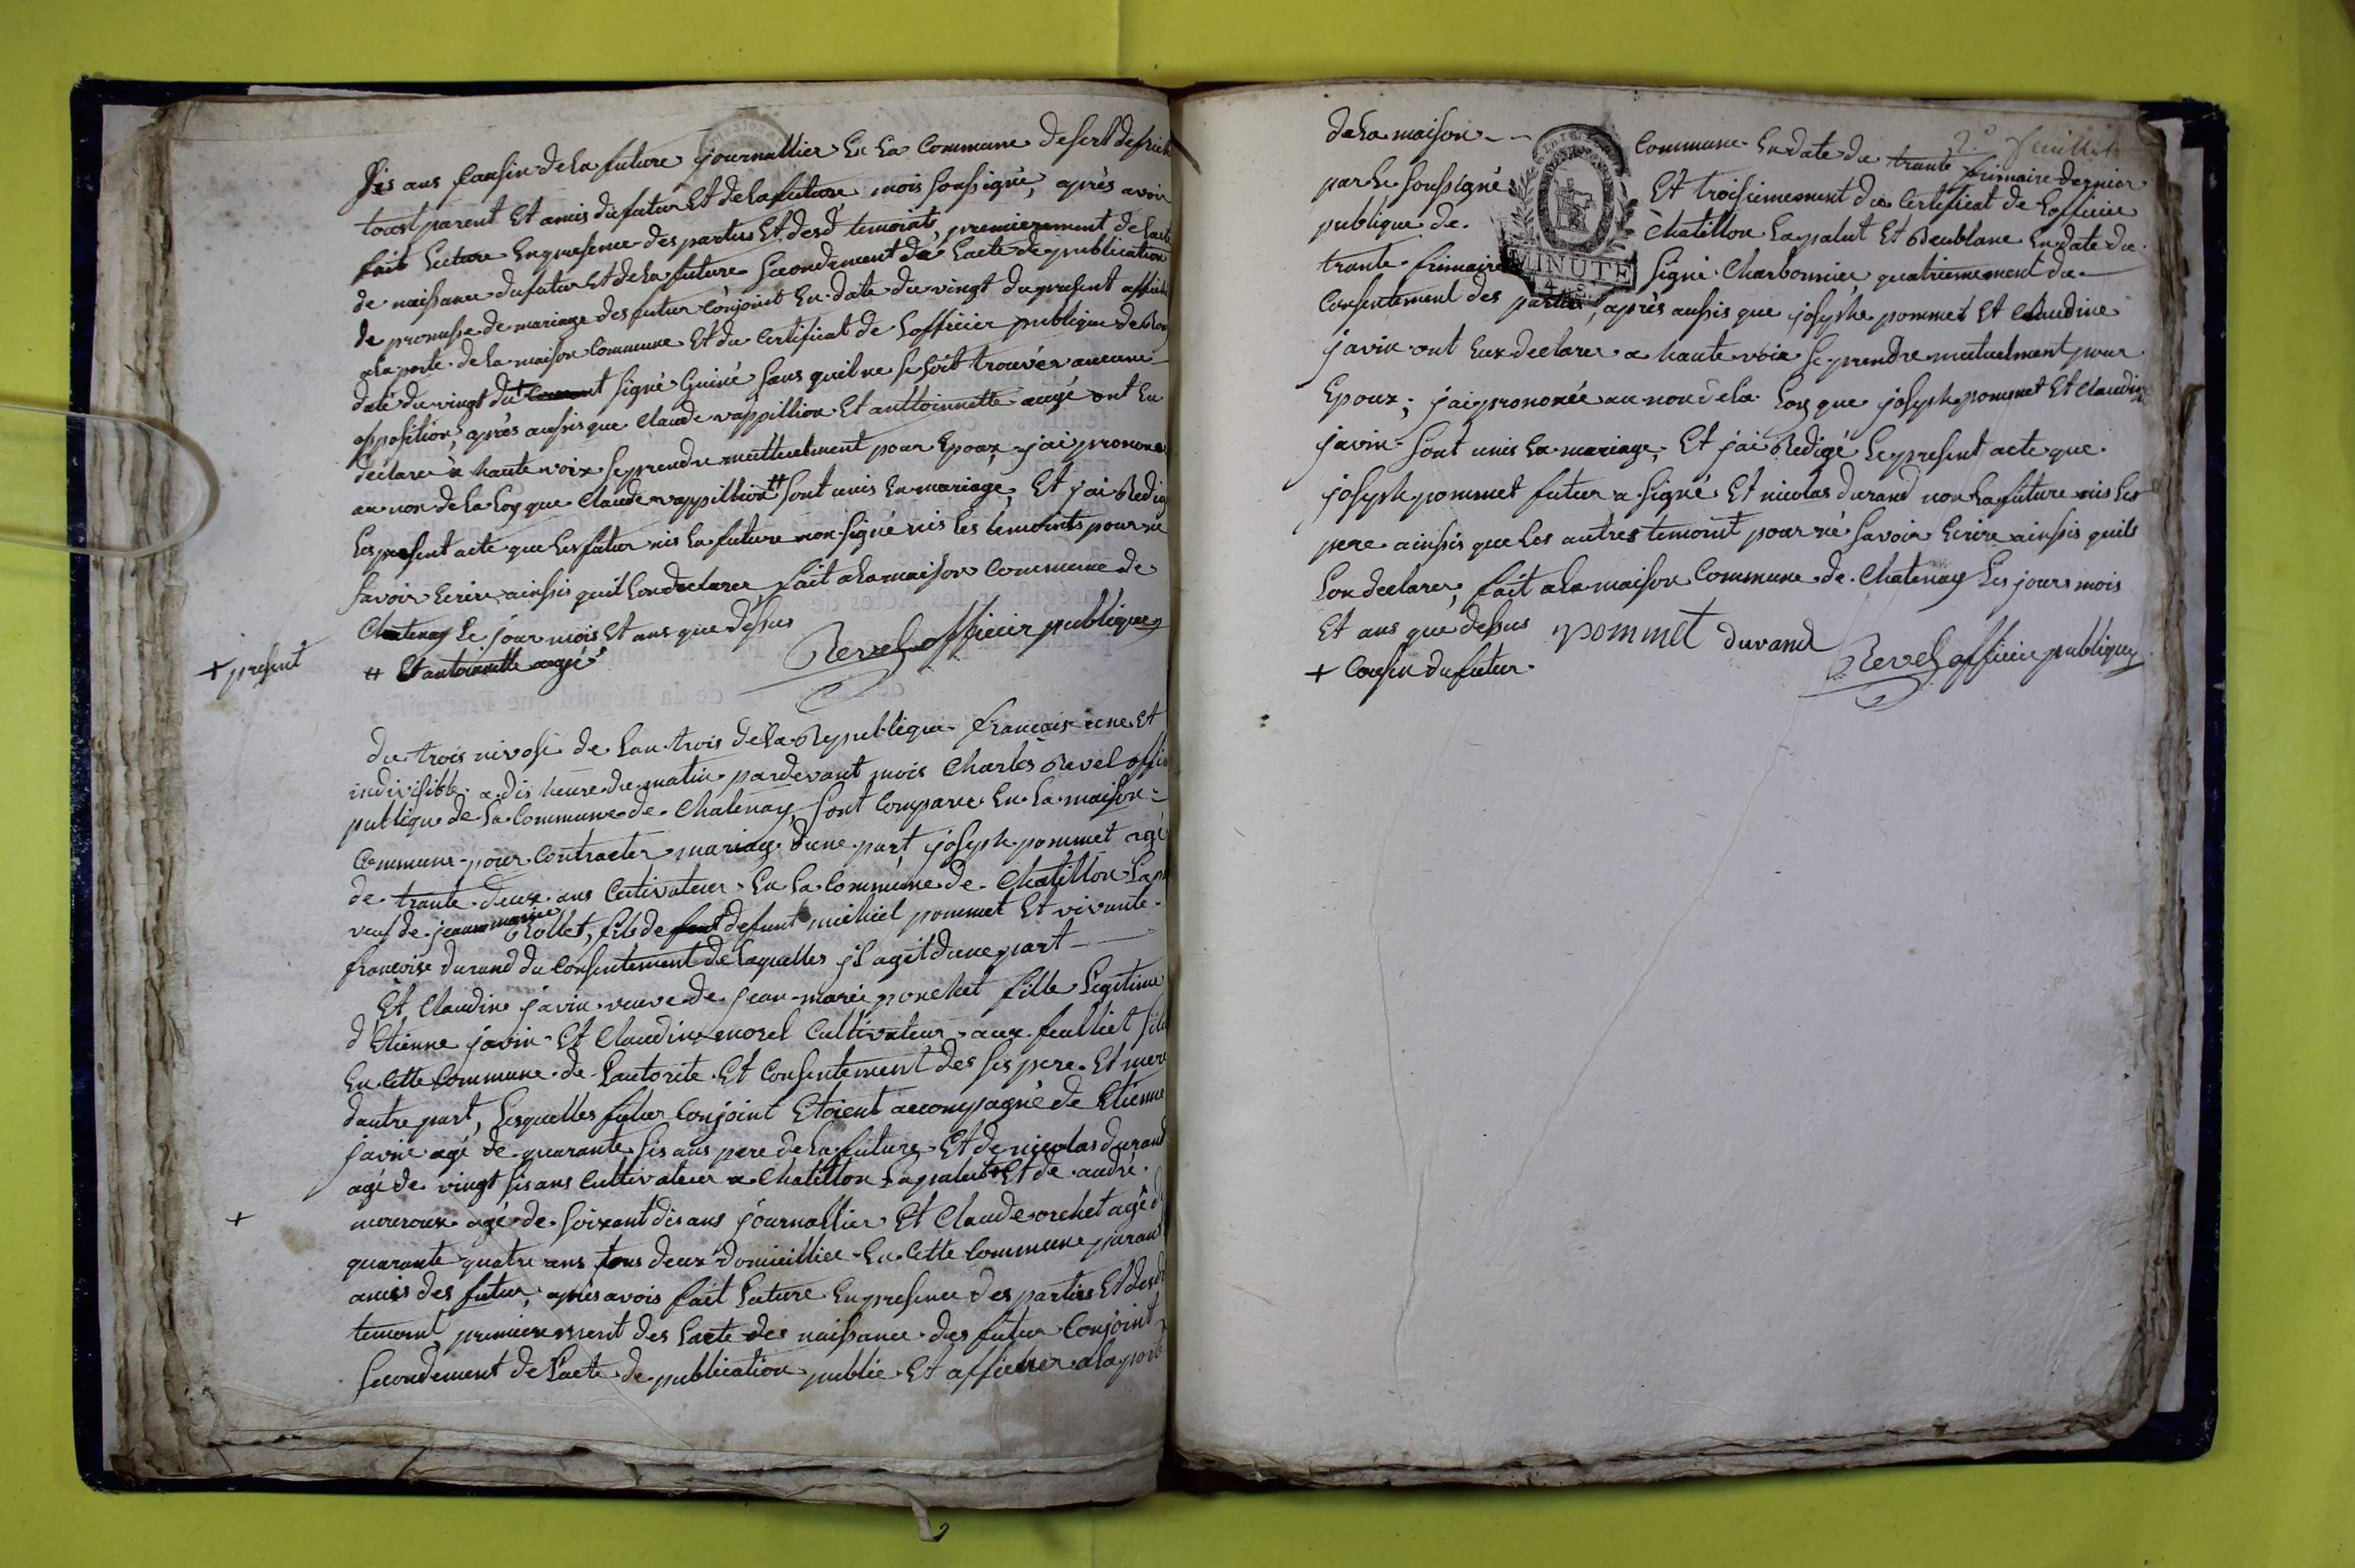 Sis ans Cousin de la future journallier En La Commune de sert
toust parent Et amis du futur Et de la future, mois soussigné, après avoir
fait Lecture En presence des parties Et desd temoint, premierement de Lacte
de naissance du futur Et de la future Secondement de Lacte de publication
de promesse de mariage des futur Conjoint En date du vingt du present affiché
a la porte de la maison Commune Et du Certificat de Lofficier publique de
daté du vingt du + signé Guiné sans quil ne se soit trouvér aucune
opposition, après aussis que Claude vappillion Et anttoinnette augé ont Eu
declaré a haute voix se prendre mutuelment pour Epoux, jai prononcé
au non de la Loy que Claude vappillion # sont unis En mariage, Et jai Redigé
Le present acte que Les futur nis La future non signé nis les temoints pour ne
savoir Ecrire ainsis quil Lon declarer, fait a la maison Commune de
Chatenay Le jour mois Et ans que dessus
Revel officier publique
+ present
# Et antoinette augé
du trois nivose de Lan trois de la Republique francaise une Et
indivisible a dis heure du matin pardevant mois Charles Revel offi
publique de La Commune de Chatenay, sont Comparee En La maison
Commune pour Contracter mariage dune part joseph pommet agé
de trante deux ans Cultivateur En La Commune de Chatillon La
veuf de jeanne marie Collet, fils de defunt michiel pommet Et vivante
francoise durand du Consentement de Laquelles jl agit dune part
Et Claudine javin veuve de jean marie ponchet fille Legitime
d'Etienne javin Et Claudine morel Cultivateur aux feulliet
En Cette Commune de Lautorite Et Consentement des ses pere Et mere
dautre part, Lesquelles futur Conjoint Etoient accompagné de Etienne
javin agé de quarante sis ans pere de la future Et de nicolas durand
agé de vingt sis ans Cultivateur a Chatillon Lapalut + Et de andré
moreroux agé de soixant dis ans journallier Et Claude orchet agé d
+
quarante quatre ans tous deux domicilliee En Cette Commune parant
amis des futur, après avois fait Lecture En presence des parties Et desd
temoint, premierement des Lacte de naissance des futur Conjoint
Secondement de Lacte de publication publié Et afficher a la porte
2e feuillet
de La maison Commune En date du trante frimaire dernier
par Le soussigné Et troisiemement du Certificat de Lofficier
publique de Chatillon Lapalut Et Beublane En date du
trante frimaire signé Charbonnier, quatriemement du
MINUTE
4 s.
Consentement des parties, après aussis que joseph pommet Et Claudine
javin ont Eux declarer a haute voix se prendre mutuelment pour
Epoux; jai prononcée au non de la Loy que joseph pommet Et Claudine
javin sont unis En mariage, Et jai Redigé Le present acte que
joseph pommet futur a signé Et nicolas durand non La future nis Le
pere ainsis que Les autres temoint pour né savoir Ecrire ainsis quils
Lon declarer, fait a la maison Commune de Chatenay Les jours mois
Et ans que dessus pommet durand Revel officier publique
+ Cousin du futur